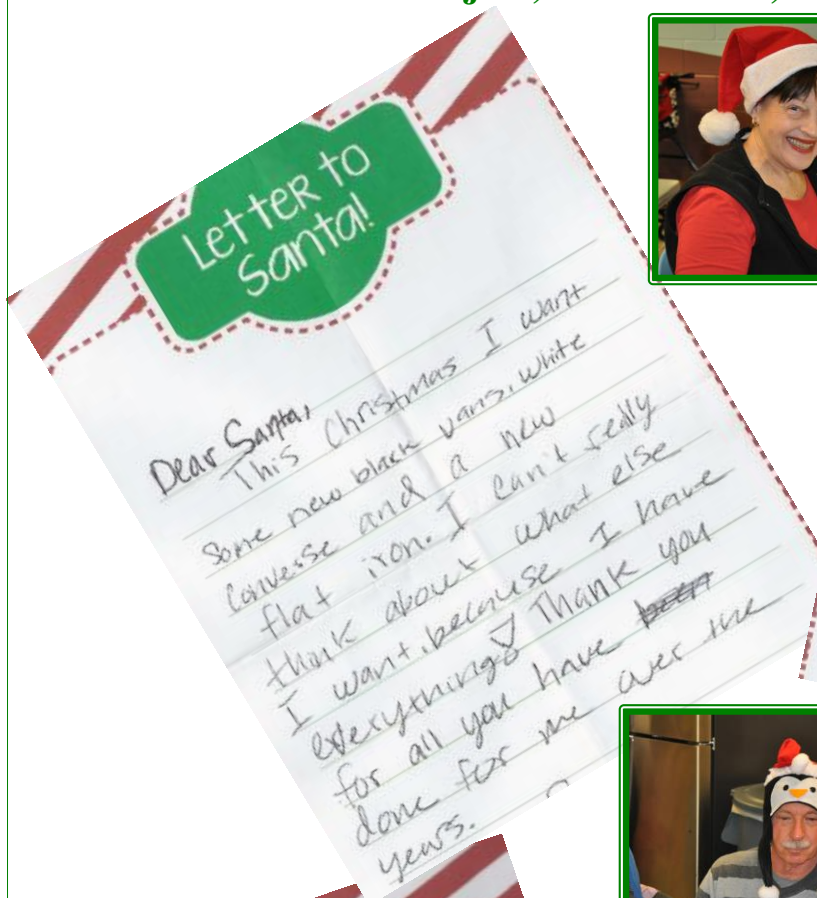 Letter to
Santa!
Dear Santa,
This Christmas I want
some new black vans, white
converse and a new
flat iron. I can't really
think about what else
I want, because I have
everything! Thank you
for all you have
done for me over the
years.